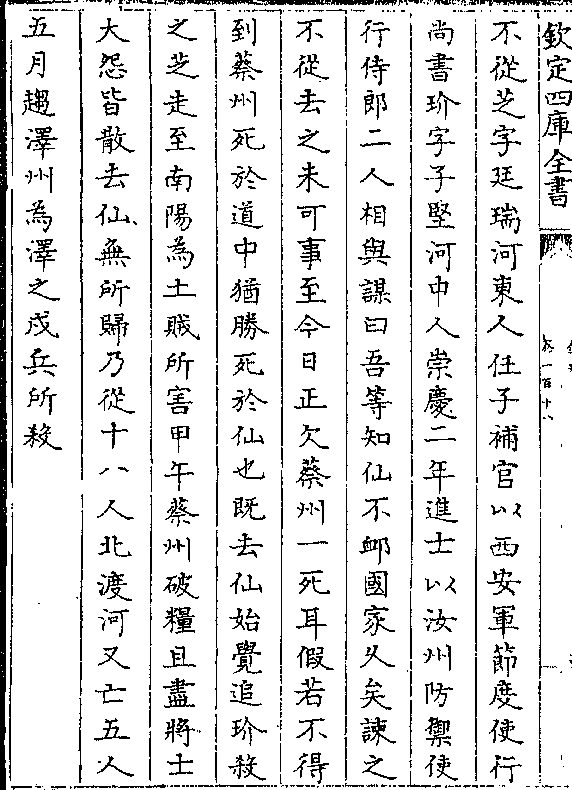 欽定四庫全書
不從芝字廷瑞河東人任子補官以西安軍節度使行
尚書玠字子堅河中人崇慶二年進士以汝州防禦使
行侍郎二人相與謀曰吾等知仙不䘏國家久矣諫之
不從去之未可事至今日正欠蔡州一死耳假若不得
到蔡州死於道中猶勝死於仙也既去仙始覺追玠殺
之芝走至南陽為土賊所害甲午蔡州破糧且盡將士
大怨皆散去仙無所歸乃從十八人北渡河又亡五人
五月趨澤州為澤之戍兵所殺